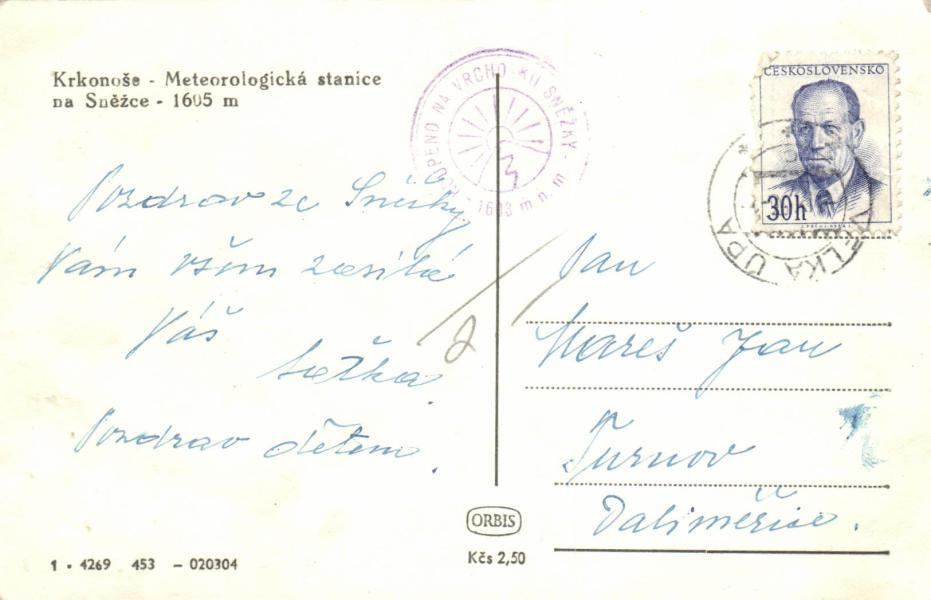 Krkonoše - Meteorologická stanice
na Sněžce - 1605 m
KOUPENO NA VRCHOLKU SNĚŽKY.
1603 m n. m.
ČESKOSLOVENSKO
30h
VELKÁ ÚPA
Pozdrav ze Sněžky
Vám všem zasílá
Váš
Pozdrav dětem.
2
Pan
Mareš Jan
Turnov
Daliměřice.
ORBIS
Kčs 2,50
1 • 4269 453 - 020304